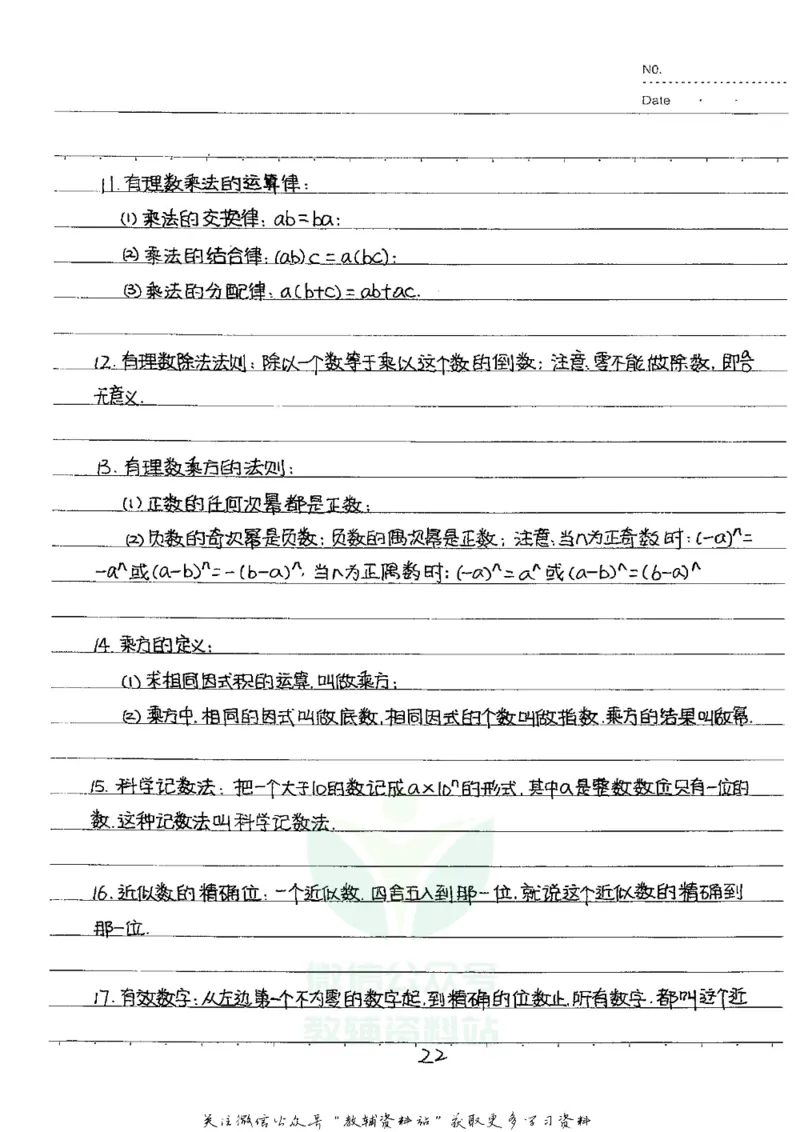 NO.
Date
11.有理数乘法的运算律:
(1)乘法的交换律:ab=ba;
(2)乘法的结合律:(ab)c=a(bc);
(3)乘法的分配律:a(b+c)=ab+ac.
12.有理数除法法则:除以一个数等于乘以这个数的倒数;注意:零不能做除数,即a/0
无意义.
13.有理数乘方的法则:
(1)正数的任何次幂都是正数;
(2)负数的奇次幂是负数;负数的偶次幂是正数;注意:当n为正奇数时:(-a)ⁿ=
-aⁿ或(a-b)ⁿ=-(b-a)ⁿ,当n为正偶数时:(-a)ⁿ=aⁿ或(a-b)ⁿ=(b-a)ⁿ
14.乘方的定义:
(1)求相同因式积的运算,叫做乘方;
(2)乘方中,相同的因式叫做底数,相同因式的个数叫做指数,乘方的结果叫做幂.
15.科学记数法:把一个大于10的数记成a×10ⁿ的形式,其中a是整数数位只有一位的
数,这种记数法叫科学记数法.
16.近似数的精确位:一个近似数,四舍五入到那一位,就说这个近似数的精确到
那一位.
17.有效数字:从左边第一个不为零的数字起,到精确的位数止,所有数字,都叫这个近
微信公众号
教辅资料站
22
关注微信公众号“教辅资料站”获取更多学习资料